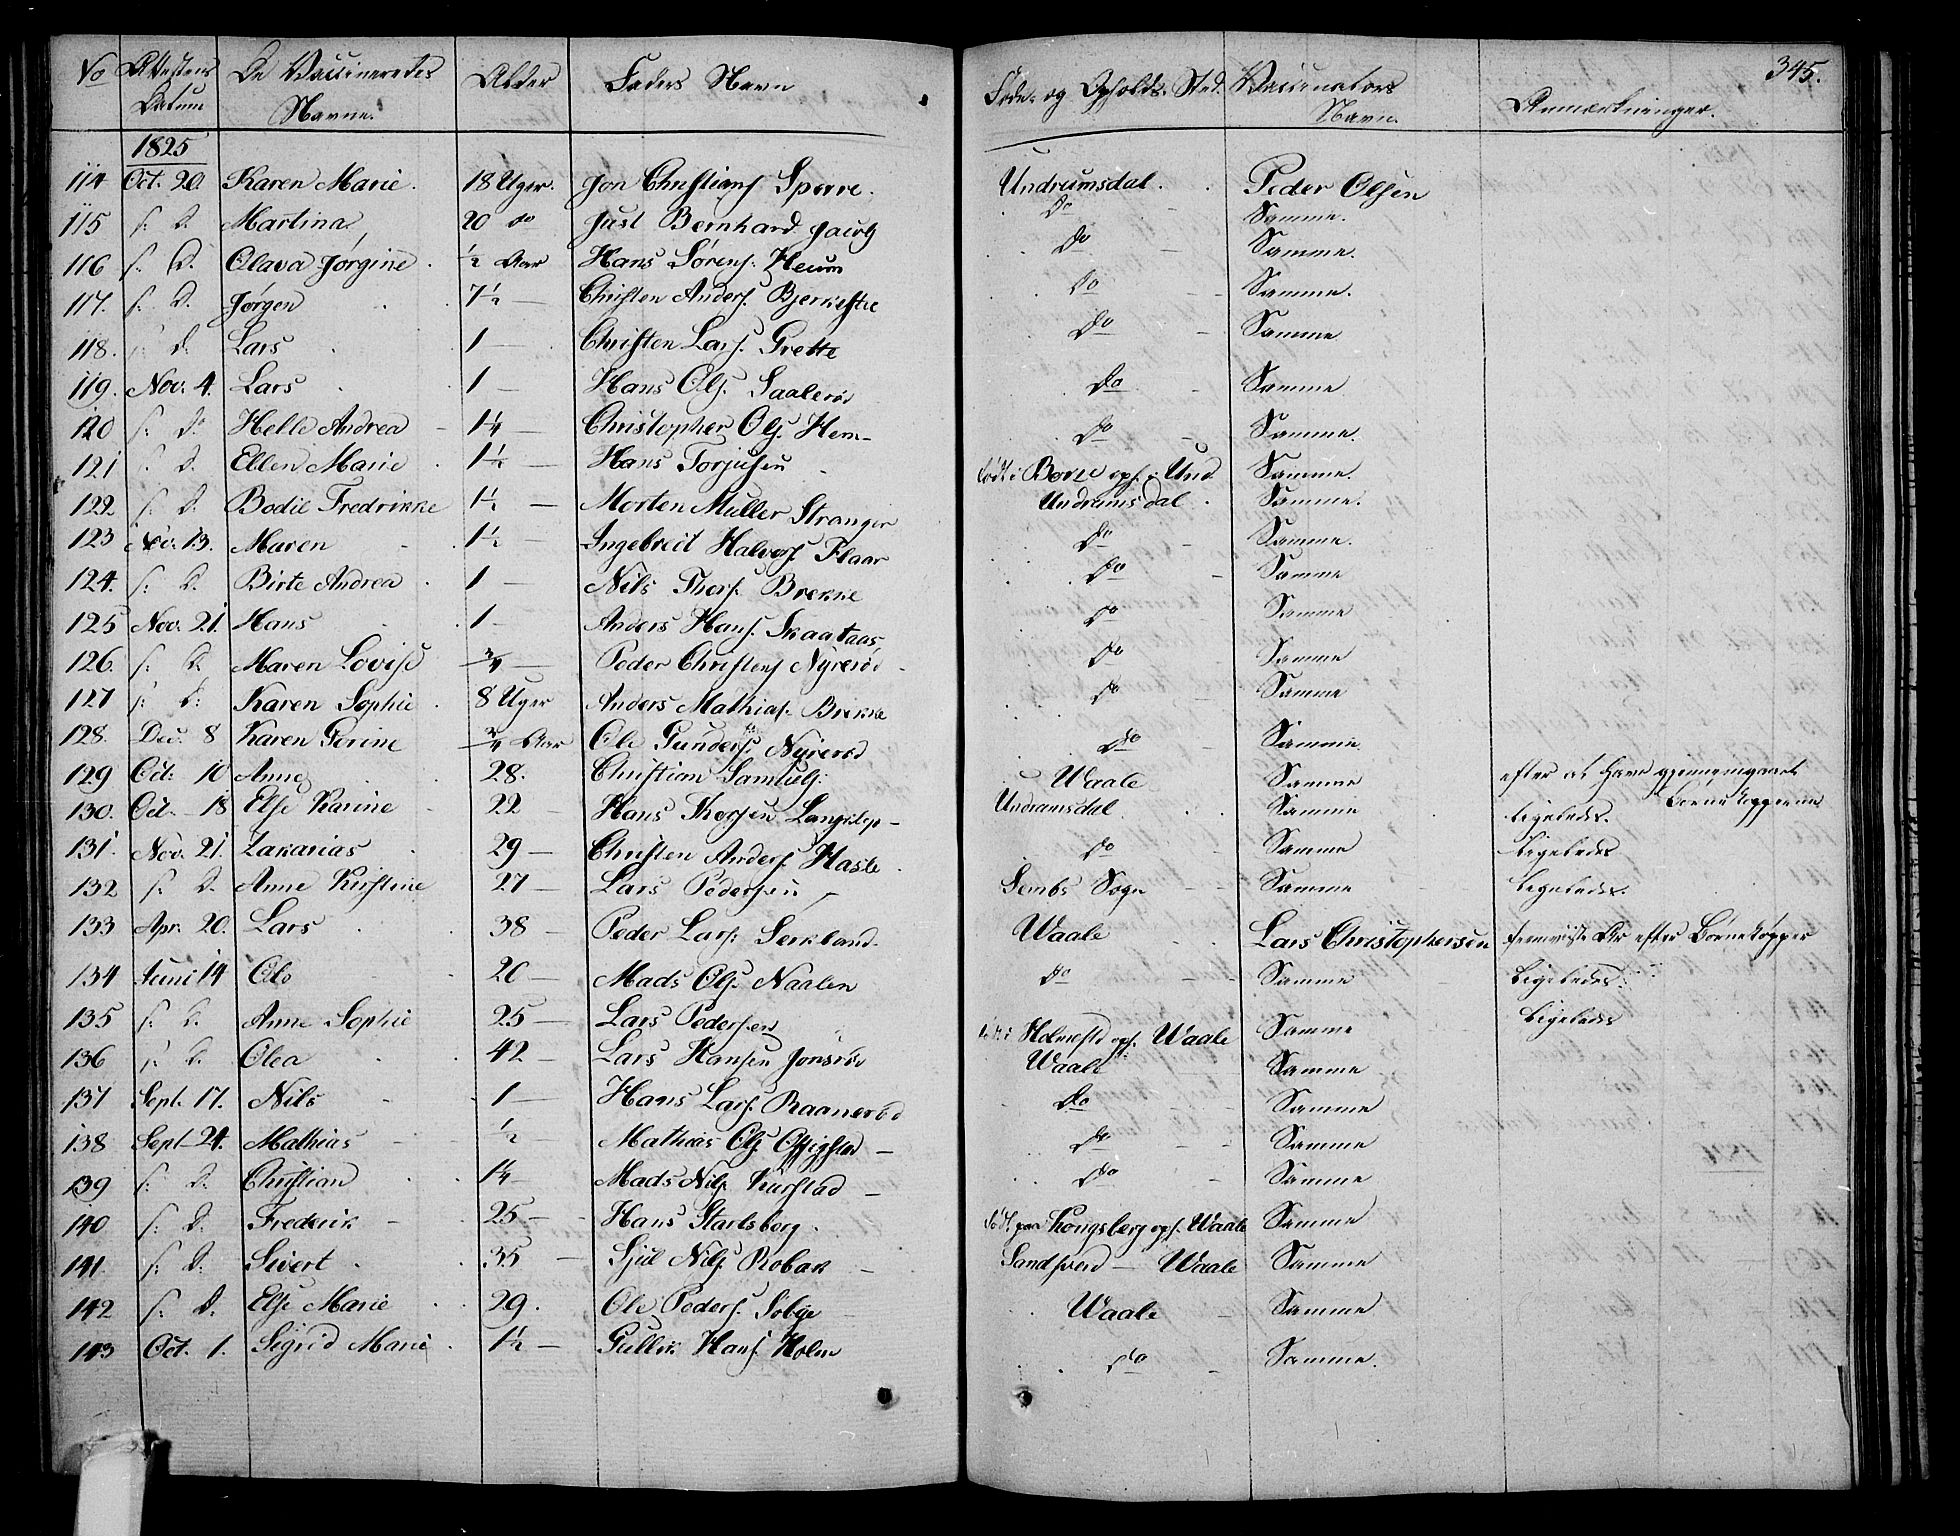 345.
No Attestens Datum De Vaccineredes Navne. Alder Faders Navn Føde- og Opholds-Sted. Vaccinators Navn. Anmærkninger.
1825
114 Oct. 20. Karen Marie. 18 Uger. Jon Christians Sperre. Undrumsdal. Peder Olsen
115 s. D. Martina 20 do Just Bernhard Jacobs do Samme.
116 s. D. Olava Jørgine. ½ Aar Hans Sørens. Heum do Samme.
117. s. D. Jørgen 7½ — Christen Anders. do Samme.
118. s. D. Lars 1 — Christen Lars. Grette do Samme
119. Nov. 4. Lars 1 — Hans Ols. Saalerød do Samme
120 s. Do Helle Andrea 1¼ — Christopher Ols. Hem— do Samme.
121 s. D. Ellen Marie 1½ — Hans Torjusen født i Borre oph. i Und. Samme.
122 s. D. Bodil Fredrikke 1½ — Morten Müller Stranger Undrumsdal. Samme.
123 Nov. 13. Maren 1½ — Ingebrect Halvors. Flaar do Samme.
124. s. D. Birte Andrea 1 — Nils Thors. Brekke do Samme
125 Nov. 21. Hans 1 — Anders Hans. Skaataas, do Samme
126. s. D. Maren Lovise ¾ — Peder Christens Nyrerød do Samme
127 s. D. Karen Sophie 8 Uger Anders Mathias. Brekke do Samme
128. Dec. 8 Karen Gorine ¾ Aar Ole Gunders. Nyrerød do Samme
129 Oct. 10 Anne 28. Christian Samuels. Waale Samme efter at have gjennemgaaet Børnekopperne
130. Oct. 18 Else Karine 22 — Hans Undrumsdal Samme Ligeledes.
131. Nov. 21. Zakarias 29 — Christen Anders. Hasle do Samme Ligeledes
132 s. D. Anne Kirstine 27 — Lars Pedersen Sembs Sogn Samme Ligeledes.
133 Apr. 20. Lars 38 — Peder Lars. Waale Lars Christophersen fremviste Ar efter Børnekopper
134 Juni 14 Ole 20 — Mads Ols. Naalen do Samme Ligeledes.
135 s. D. Anne Sophie 25 — Lars Pedersen født i Holmestd oph. Waale Samme Ligeledes
136 s. D. Olea 42 — Lars Hansen Jonsrød Waale Samme
137 Sept. 17. Nils 1 — Hans Lars. Raanerød do Samme
138 Sept. 24. Mathias ½ — Mathias Ols. do Samme
139 s. D. Christian 1¼ — Mads Nils. Kirstad do Samme
140 s. D. Frederik 25 — Hans Starlsberg. født paa Kongsberg oph. Waale Samme
141. s. D. Sivert 35 — Sjul Nils. Robak Sandsverd — Waale Samme
142 s. D. Else Marie 29. Ole Peders. Solbge Waale Samme
143 Oct. 1. Sigrid Marie 1½ — Gullik Hans. Holm do Samme.